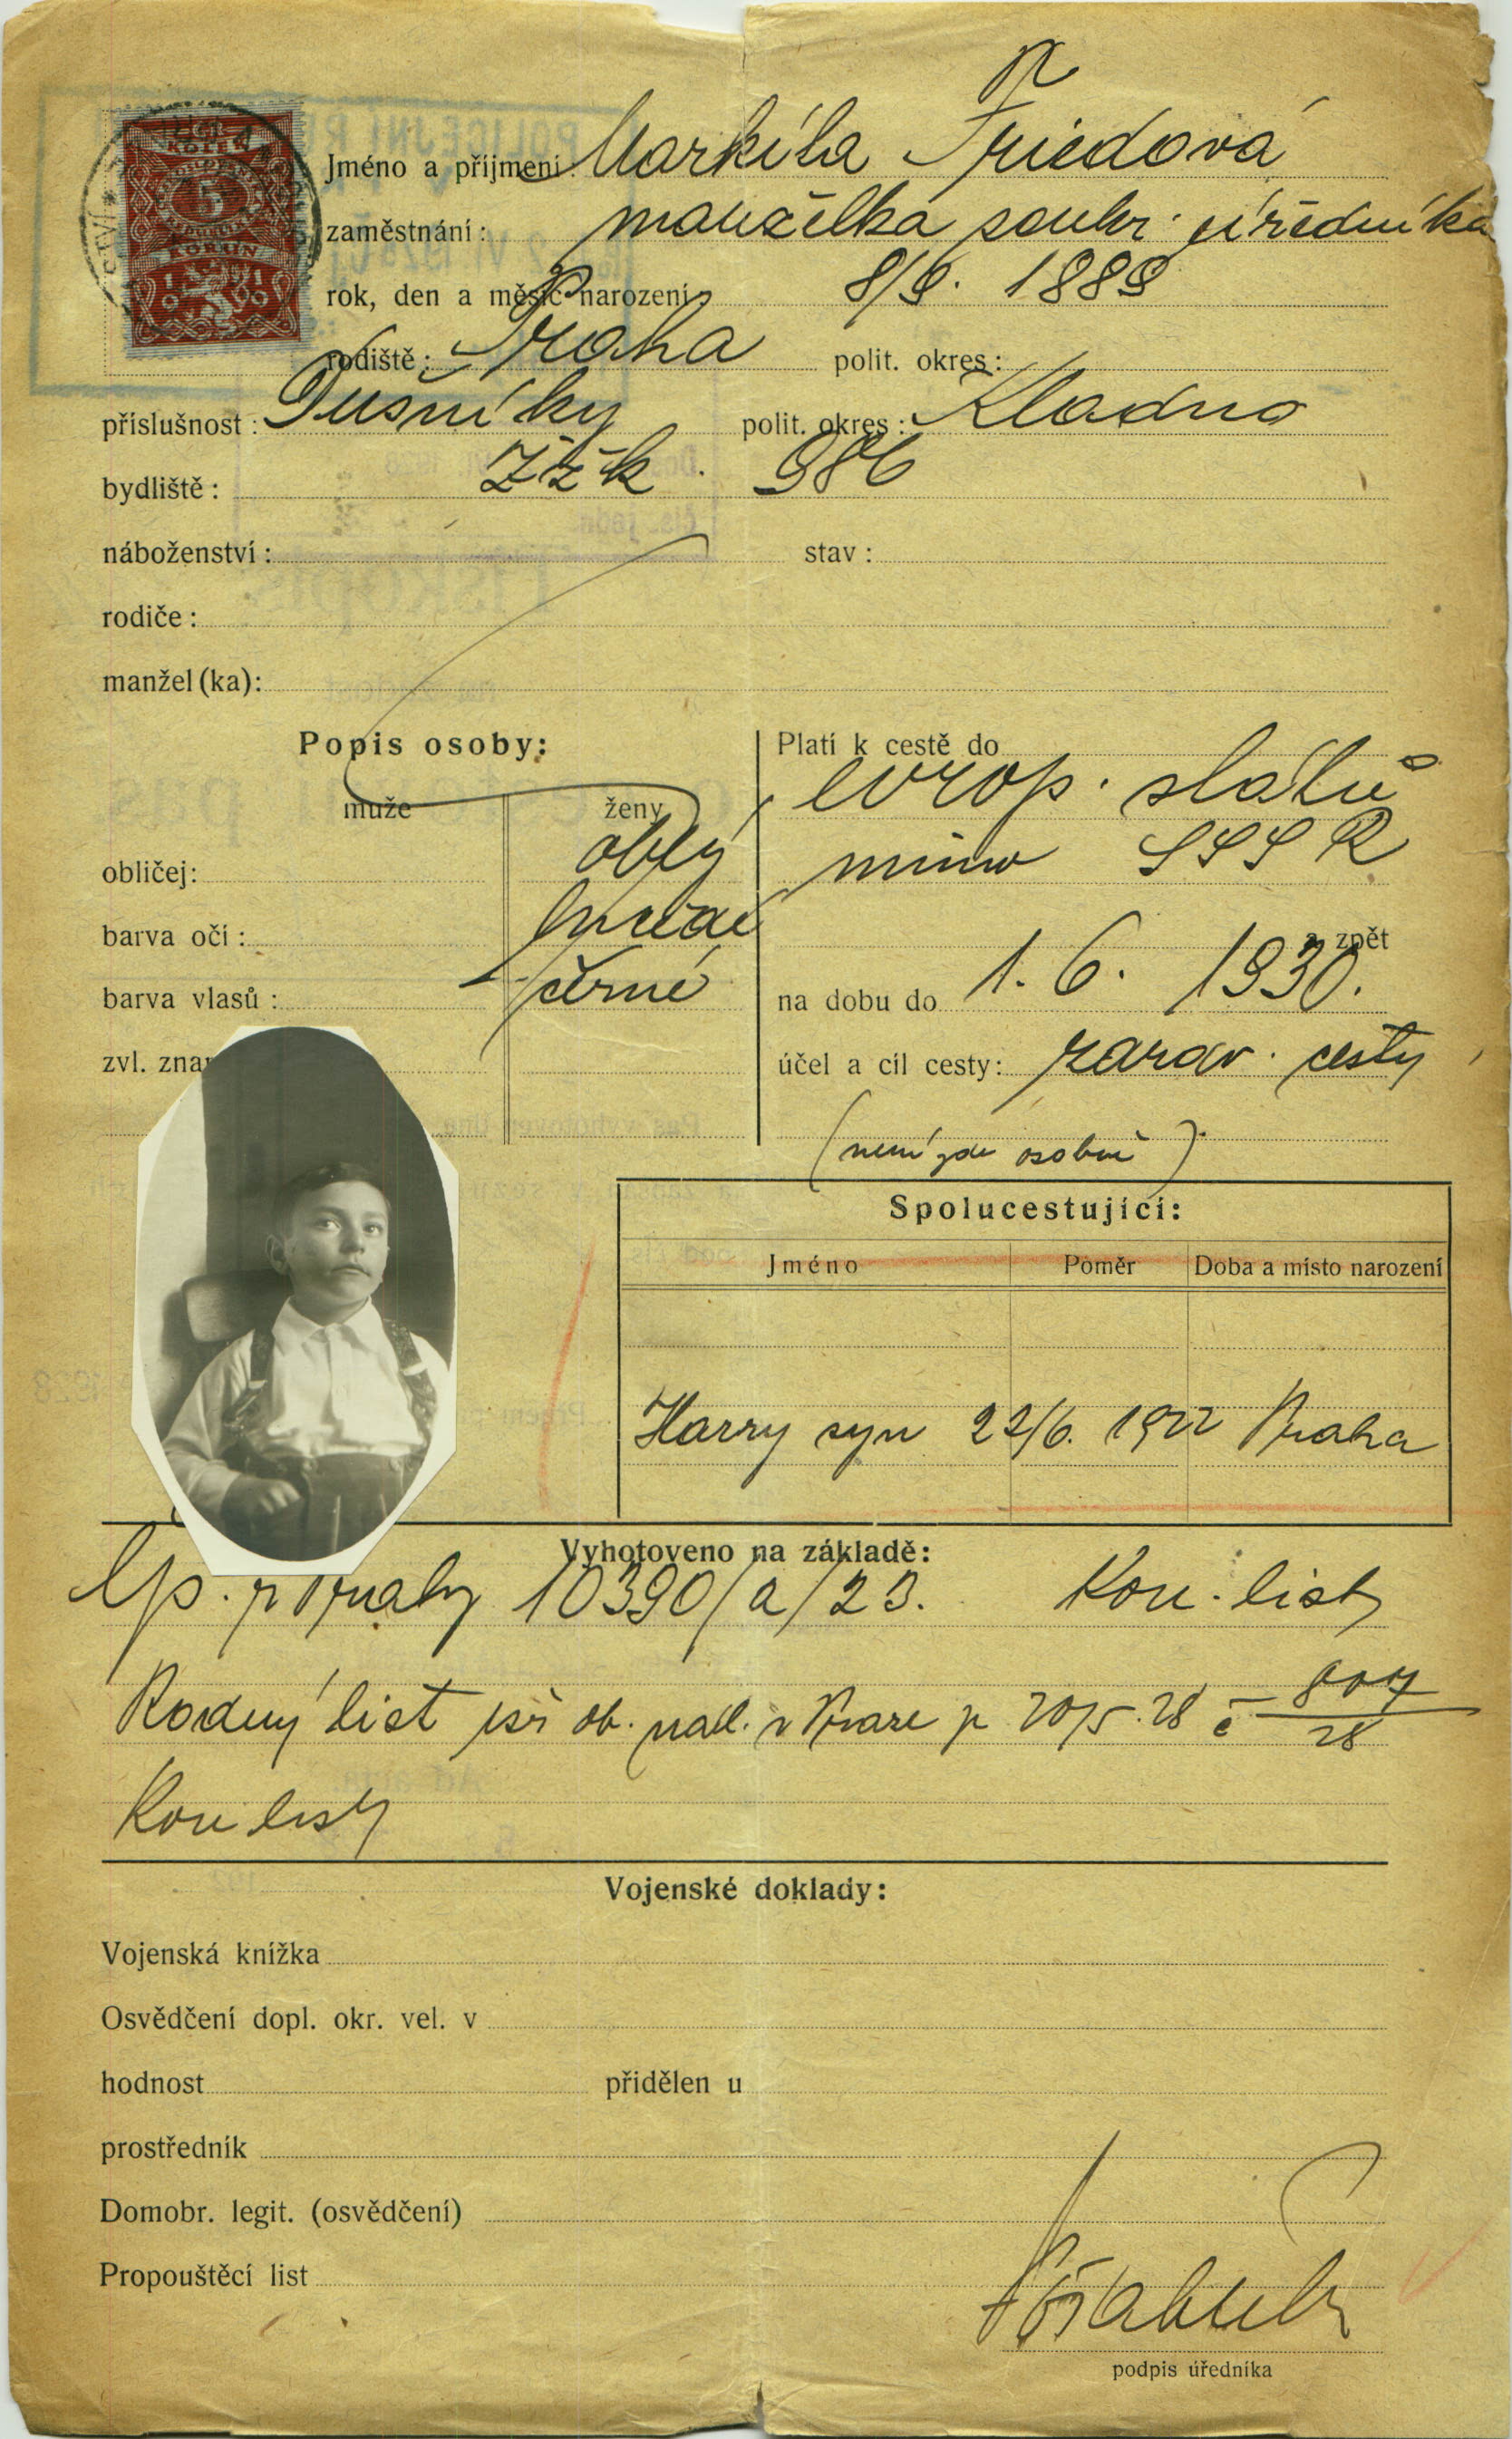 R
Jméno a příjmení: Markéta Friedová
zaměstnání: manželka soukr. úředníka
rok, den a měsíc narození: 8/9. 1889
rodiště: Praha polit. okres:
příslušnost: Dušníky polit. okres: Kladno
bydliště: Žžk. 986
náboženství: stav:
rodiče:
manžel(ka):
Popis osoby:
muže ženy
obličej: oblý
barva očí: hnědé
barva vlasů: černé
zvl. znam
Platí k cestě do
evrop. států
mimo SSSR
a zpět
na dobu do 1. 6. 1930.
účel a cíl cesty: zarav. cesty
(není zde osobně)
Spolucestující:
Jméno Poměr Doba a místo narození
Harry syn 22/6. 1922 Praha
Vyhotoveno na základě:
10390/a/23. Kon. listy
Rodný list ob. v Praze 20/5. 28 č 807/28
Kon listy
Vojenské doklady:
Vojenská knížka
Osvědčení dopl. okr. vel. v
hodnost přidělen u
prostředník
Domobr. legit. (osvědčení)
Propouštěcí list
podpis úředníka
5
KORUN
1919